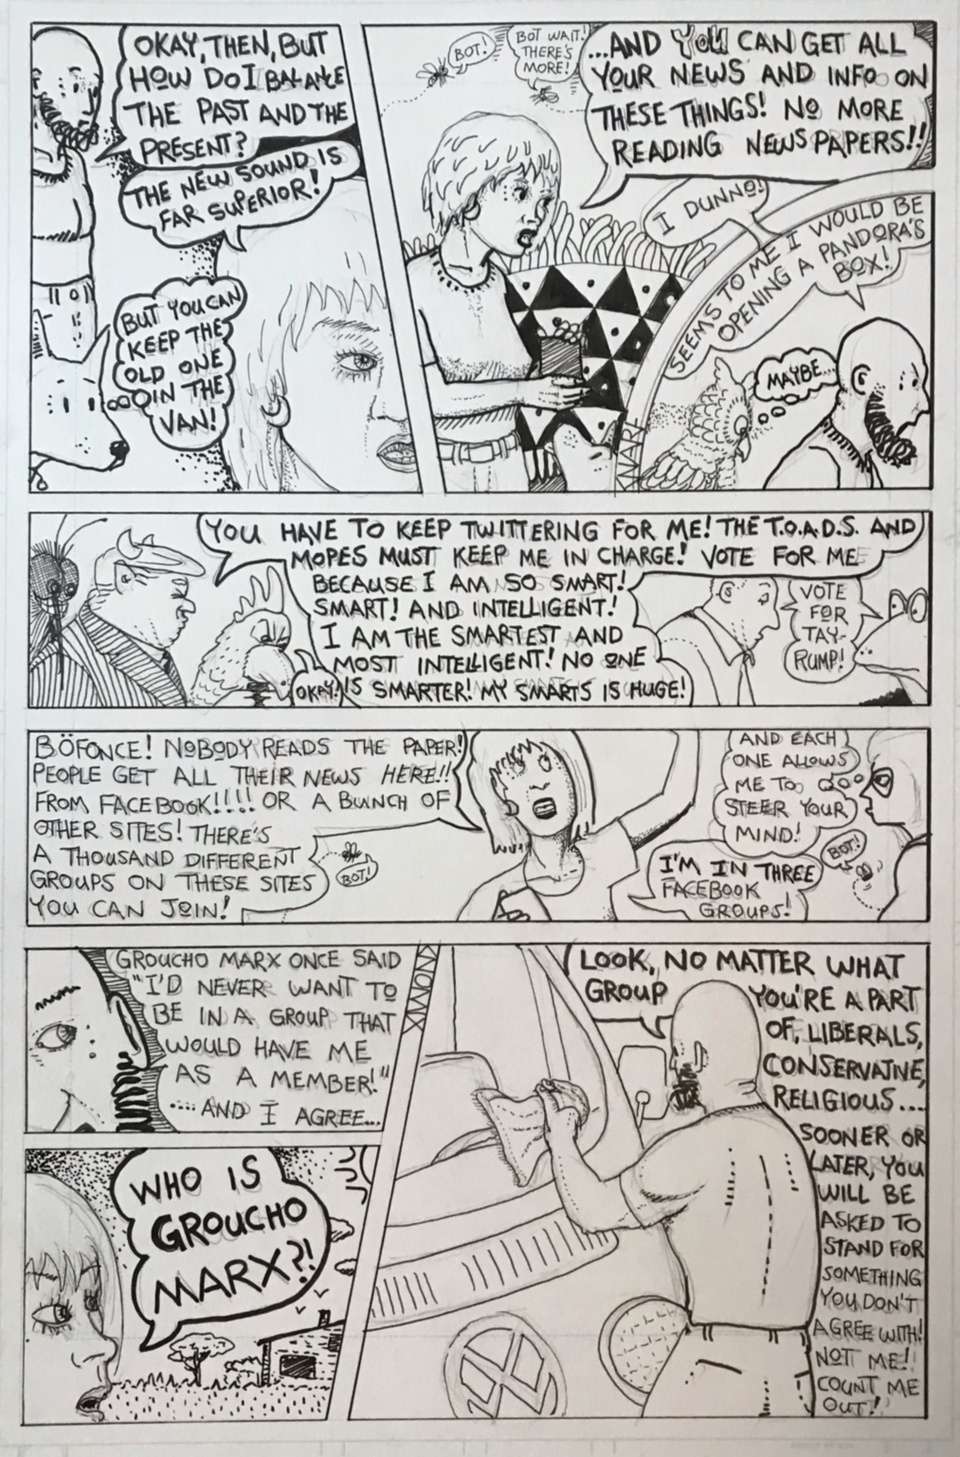 OKAY, THEN, BUT
HOW DO I BALANCE
THE PAST AND THE
PRESENT?
THE NEW SOUND IS
FAR SUPERIOR!
BUT YOU CAN
KEEP THE
OLD ONE
IN THE
VAN!
BOT!
BOT WAIT!
THERE'S
MORE!
...AND YOU CAN GET ALL
YOUR NEWS AND INFO ON
THESE THINGS! NO MORE
READING NEWSPAPERS!!
I DUNNO!
SEEMS TO ME I WOULD BE
OPENING A PANDORA'S
BOX!
MAYBE...
YOU HAVE TO KEEP TWITTERING FOR ME! THE T.O.A.D.S. AND
MOPES MUST KEEP ME IN CHARGE! VOTE FOR ME
BECAUSE I AM SO SMART!
SMART! AND INTELLIGENT!
I AM THE SMARTEST AND
MOST INTELLIGENT! NO ONE
IS SMARTER! MY SMARTS IS HUGE!
OKAY!
VOTE
FOR
TAY-
RUMP!
BÖFONCE! NOBODY READS THE PAPER!
PEOPLE GET ALL THEIR NEWS HERE!!
FROM FACEBOOK!!!! OR A BUNCH OF
OTHER SITES! THERE'S
A THOUSAND DIFFERENT
GROUPS ON THESE SITES
YOU CAN JOIN!
BOT!
AND EACH
ONE ALLOWS
ME TO
STEER YOUR
MIND!
BOT!
I'M IN THREE
FACEBOOK
GROUPS!
GROUCHO MARX ONCE SAID
"I'D NEVER WANT TO
BE IN A GROUP THAT
WOULD HAVE ME
AS A MEMBER!"
....AND I AGREE...
WHO IS
GROUCHO
MARX?!
LOOK, NO MATTER WHAT
GROUP YOU'RE A PART
OF, LIBERALS,
CONSERVATIVE,
RELIGIOUS....
SOONER OR
LATER, YOU
WILL BE
ASKED TO
STAND FOR
SOMETHING
YOU DON'T
AGREE WITH!
NOT ME!
COUNT ME
OUT!